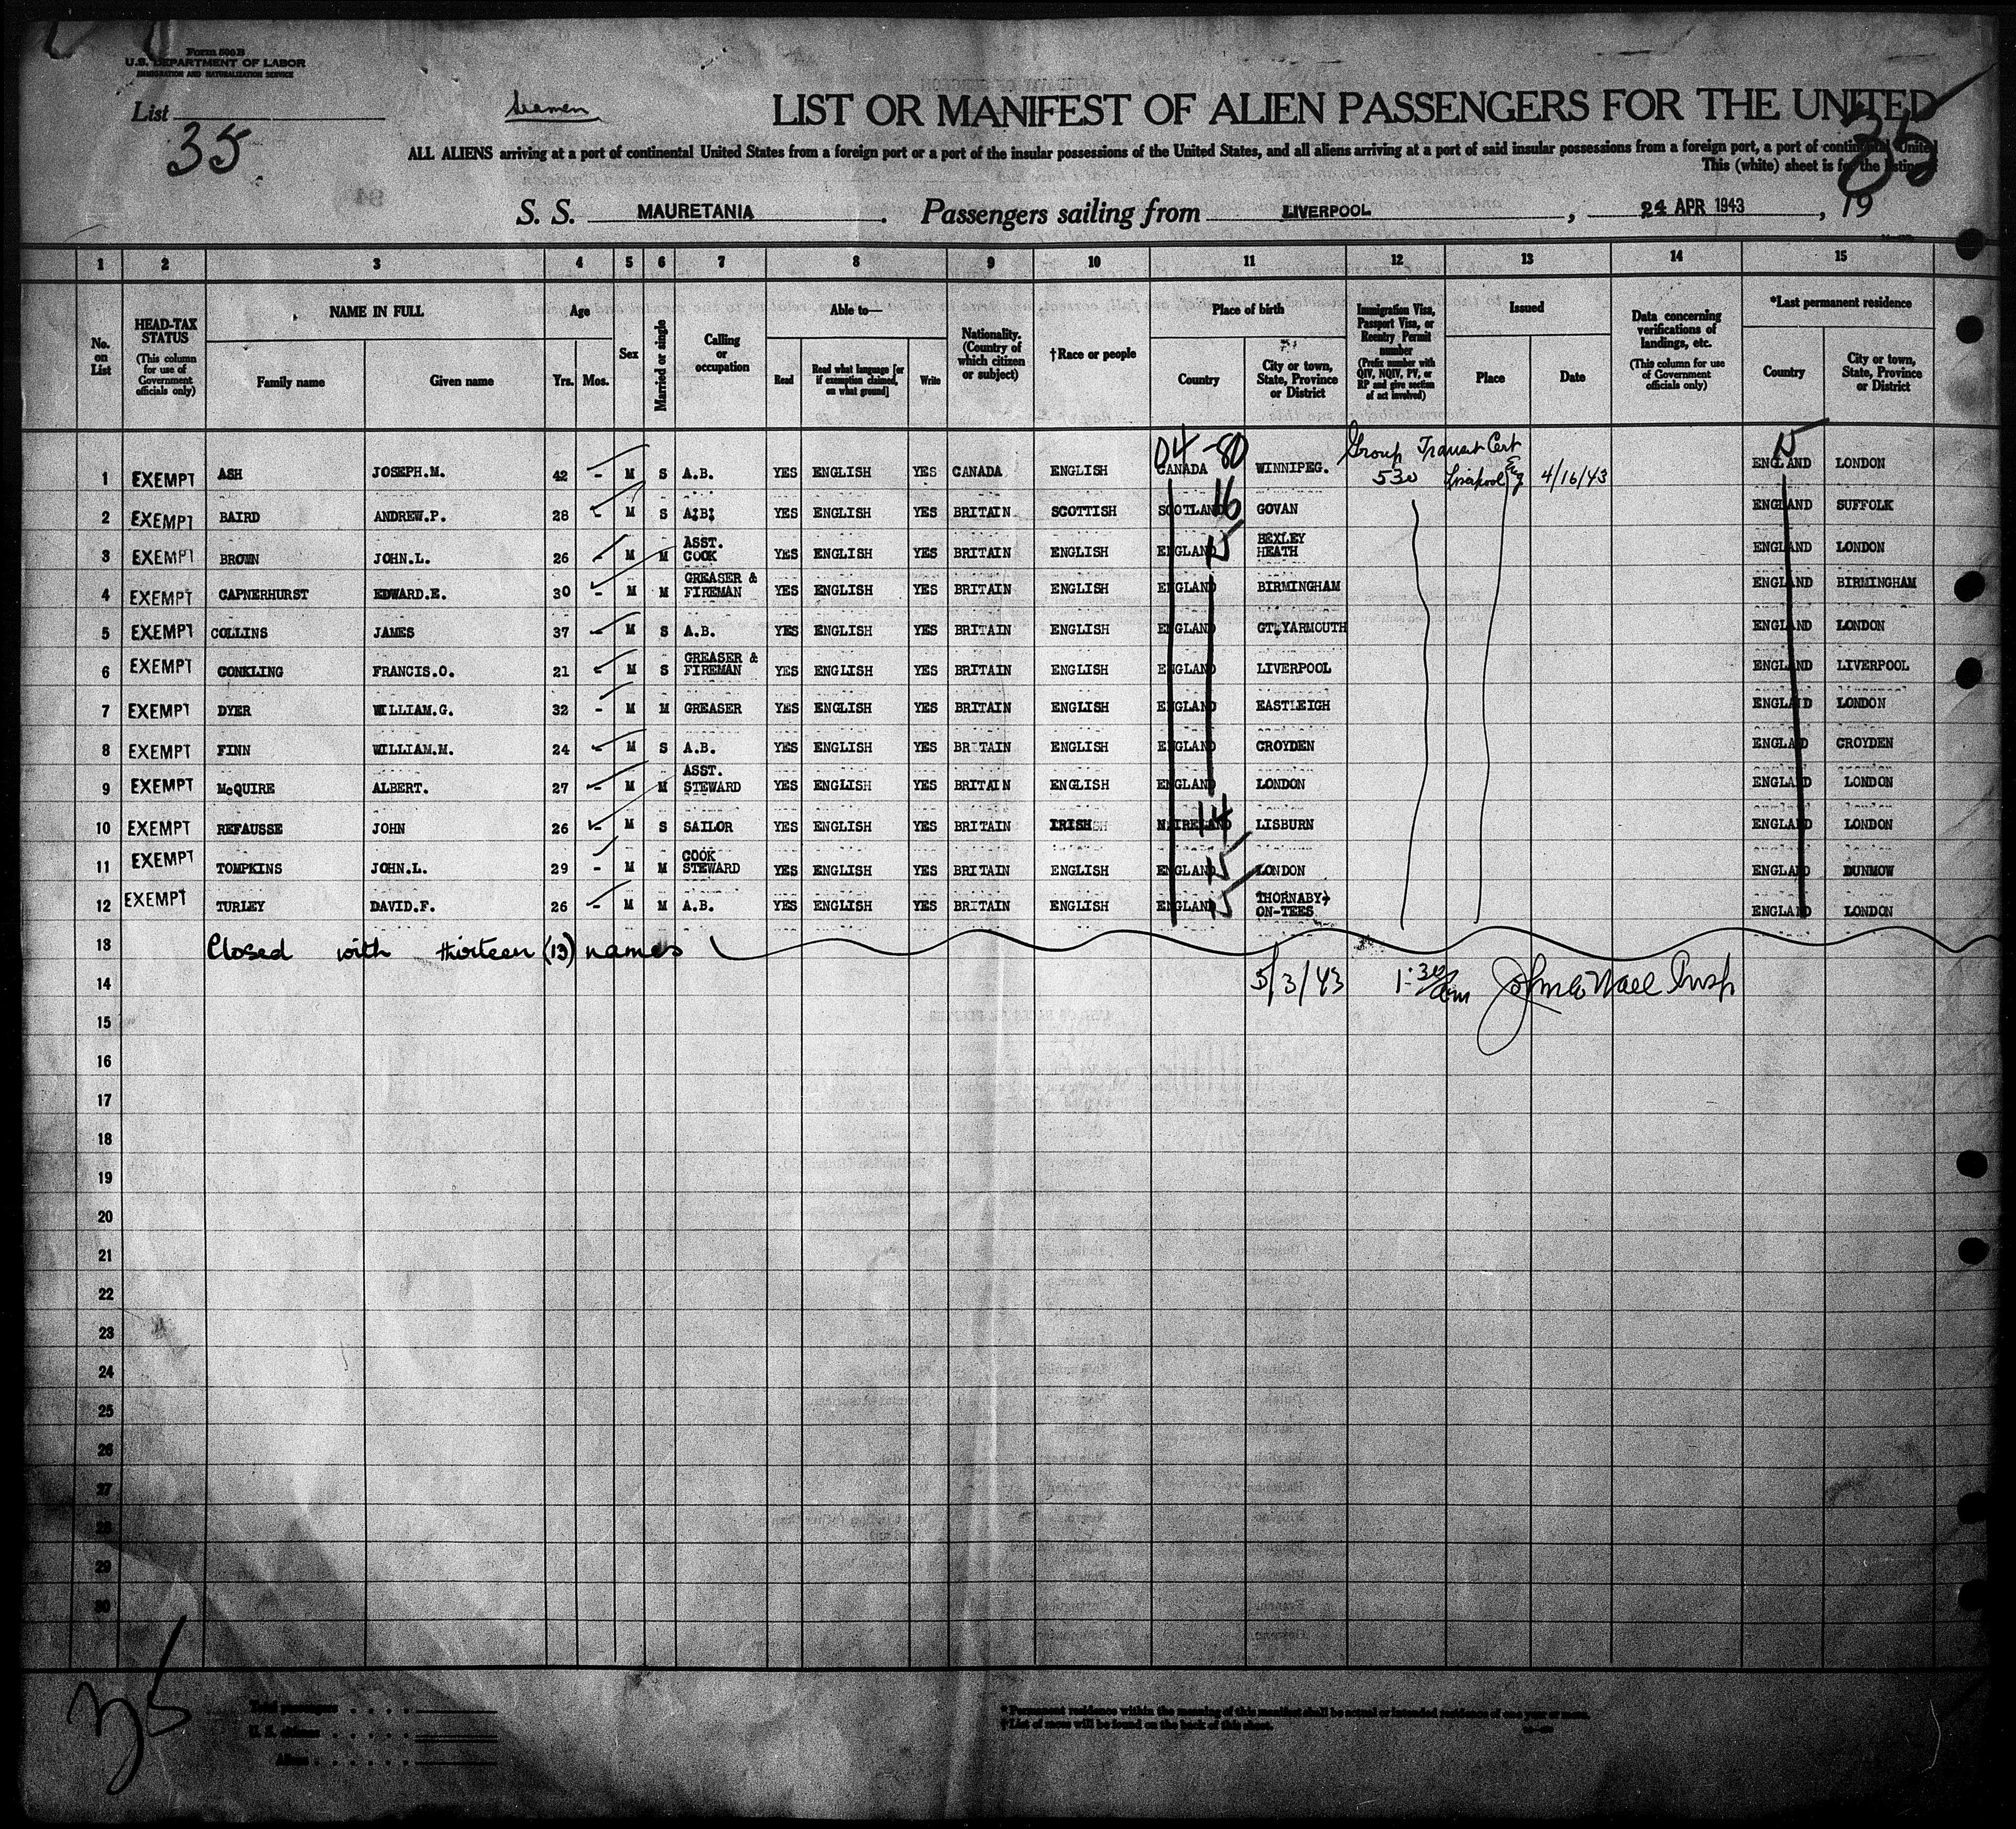 Form 500 B
U.S. DEPARTMENT OF LABOR
IMMIGRATION AND NATURALIZATION SERVICE
List
35
Seamen
LIST OR MANIFEST OF ALIEN PASSENGERS FOR THE UNITED
35
ALL ALIENS arriving at a port of continental United States from a foreign port or a port of the insular possessions of the United States, and all aliens arriving at a port of said insular possessions from a foreign port, a port of continental United
This (white) sheet is for the listing
S. S. MAURETANIA. Passengers sailing from LIVERPOOL, 24 APR 1943, 19
1 2 3 4 5 6 7 8 9 10 11 12 13 14 15
No. on List
HEAD-TAX STATUS (This column for use of Government officials only)
NAME IN FULL
Family name Given name
Age
Yrs. Mos.
Sex
Married or single
Calling or occupation
Able to—
Read
Read what language [or if exemption claimed, on what ground]
Write
Nationality. (Country of which citizen or subject)
†Race or people
Place of birth
Country
City or town, State, Province or District
Immigration Visa, Passport Visa, or Reentry Permit number (Prefix number with QIV, NQIV, PV, or RP and give section of act involved)
Issued
Place Date
Data concerning verifications of landings, etc. (This column for use of Government officials only)
*Last permanent residence
Country
City or town, State, Province or District
04 -80 Group Transit Cert 15
1 EXEMPT ASH JOSEPH.M. 42 - M S A.B. YES ENGLISH YES CANADA ENGLISH CANADA WINNIPEG. 530 Liverpool Eng 4/16/43 ENGLAND LONDON
2 EXEMPT BAIRD ANDREW.P. 28 - M S A.B. YES ENGLISH YES BRITAIN SCOTTISH SCOTLAND 16 GOVAN ENGLAND SUFFOLK
3 EXEMPT BROWN JOHN.L. 26 - M M ASST. COOK YES ENGLISH YES BRITAIN ENGLISH ENGLAND 15 BEXLEY HEATH ENGLAND LONDON
4 EXEMPT CAPNERHURST EDWARD.E. 30 - M M GREASER & FIREMAN YES ENGLISH YES BRITAIN ENGLISH ENGLAND BIRMINGHAM ENGLAND BIRMINGHAM
5 EXEMPT COLLINS JAMES 37 - M S A.B. YES ENGLISH YES BRITAIN ENGLISH ENGLAND GT.YARMOUTH ENGLAND LONDON
6 EXEMPT CONKLING FRANCIS.O. 21 - M S GREASER & FIREMAN YES ENGLISH YES BRITAIN ENGLISH ENGLAND LIVERPOOL ENGLAND LIVERPOOL
7 EXEMPT DYER WILLIAM.G. 32 - M M GREASER YES ENGLISH YES BRITAIN ENGLISH ENGLAND EASTLEIGH ENGLAND LONDON
8 EXEMPT FINN WILLIAM.M. 24 - M S A.B. YES ENGLISH YES BRITAIN ENGLISH ENGLAND CROYDEN ENGLAND CROYDEN
9 EXEMPT McQUIRE ALBERT. 27 - M M ASST. STEWARD YES ENGLISH YES BRITAIN ENGLISH ENGLAND LONDON ENGLAND LONDON
10 EXEMPT REFAUSSE JOHN 26 - M S SAILOR YES ENGLISH YES BRITAIN IRISH N.IRELAND 14 LISBURN ENGLAND LONDON
11 EXEMPT TOMPKINS JOHN.L. 29 - M M COOK STEWARD YES ENGLISH YES BRITAIN ENGLISH ENGLAND 15 LONDON ENGLAND DUNMOW
12 EXEMPT TURLEY DAVID.F. 26 - M M A.B. YES ENGLISH YES BRITAIN ENGLISH ENGLAND 15 THORNABY-ON-TEES ENGLAND LONDON
13 Closed with thirteen (13) names
14 5/3/43 1:30 am Insp
15
16
17
18
19
20
21
22
23
24
25
26
27
28
29
30
35
Total passengers
U. S. citizens
Aliens
* Permanent residence within the meaning of this manifest shall be actual or intended residence of one year or more.
† List of races will be found on the back of this sheet.